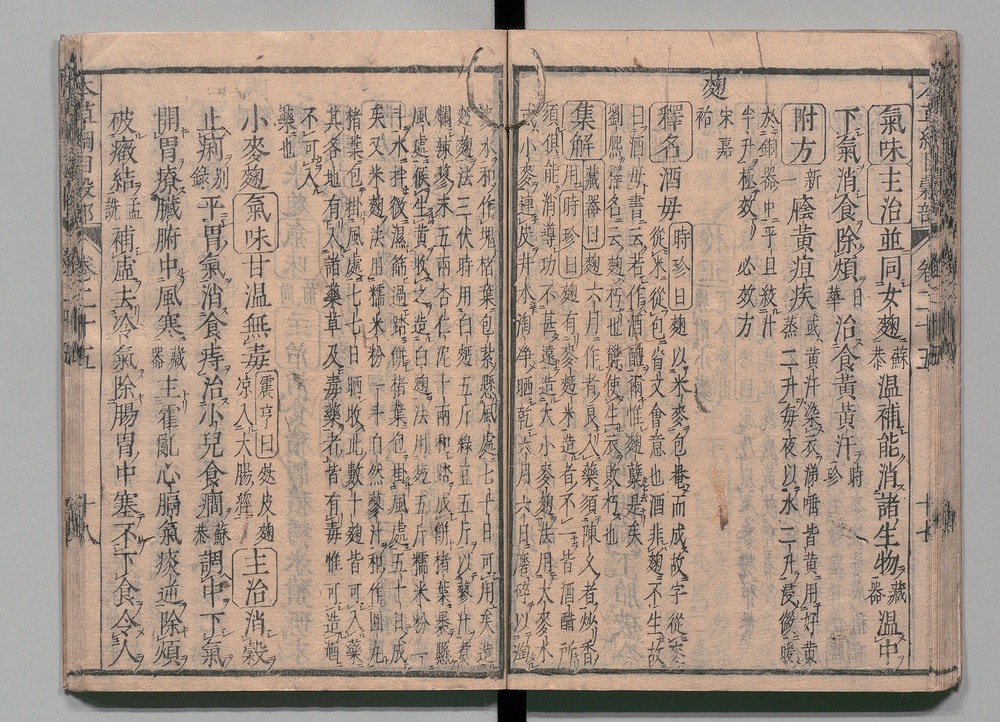 氣味主治並同女麴蘇恭溫補能消諸生物藏器溫中
下氣消食除煩日華治食黃黃汗時珍
附方新一陰黃疸疾或黃汗染衣涕唾皆黃用好黃
蒸二升每夜以水二升浸微暖
於銅器中平旦絞汁
半升極效必效方
宋嘉
祐
麴
釋名酒母時珍曰麴以米麥包罨而成故字從麥
從米從包省文會意也酒非麴不生故
曰酒母書云若作酒醴爾惟麴糵是矣
劉熙釋名云麴朽也鬱使生衣敗朽也
集解藏器曰麴六月作者良入藥須陳久者炒香
用時珍曰麴有麥麴米造者不一皆酒醋所
須俱能消導功不甚遠造大小麥麴法用大麥米
或小麥連皮井水淘淨晒乾六月六日磨碎以淘
麥水和作塊楮葉包紮懸風處七十日可用矣造
麪麴法三伏時用白麪五斤綠豆五斤以蓼汁煮
爛辣蓼末五兩杏仁泥十兩和踏成餅楮葉裹懸
風處候生黃收之造白麴法用麪五斤糯米粉一
斗水拌微濕篩過踏餅楮葉包挂風處五十日成
矣又米麴法用糯米粉一斗自然蓼汁和作圓丸
楮葉包掛風處七七日晒收此數十麴皆可入藥
其各地有入諸藥草及毒藥者皆有毒惟可造酒
不可入
藥也
小麥麴氣味甘溫無毒震亨曰麩皮麴
凉入大腸經主治消穀
止痢別錄平胃氣消食痔治小兒食癇蘇恭調中下氣
開胃療臟腑中風寒藏器主霍亂心膈氣痰逆除煩
破癥結孟詵補虛去冷氣除腸胃中塞不下食令人
本草綱目穀部 卷二十五 十八